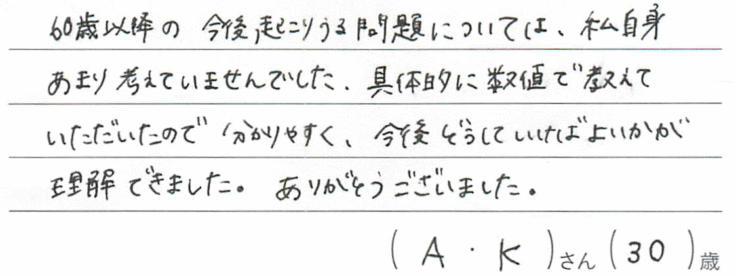 60歳以降の 今後起こりうる問題については、私自身
あまり考えていませんでした。具体的に数値で教えて
いただいたので分かりやすく、今後どうしていけばよいかが
理解できました。 ありがとうございました。
(A・K)さん(30)歳